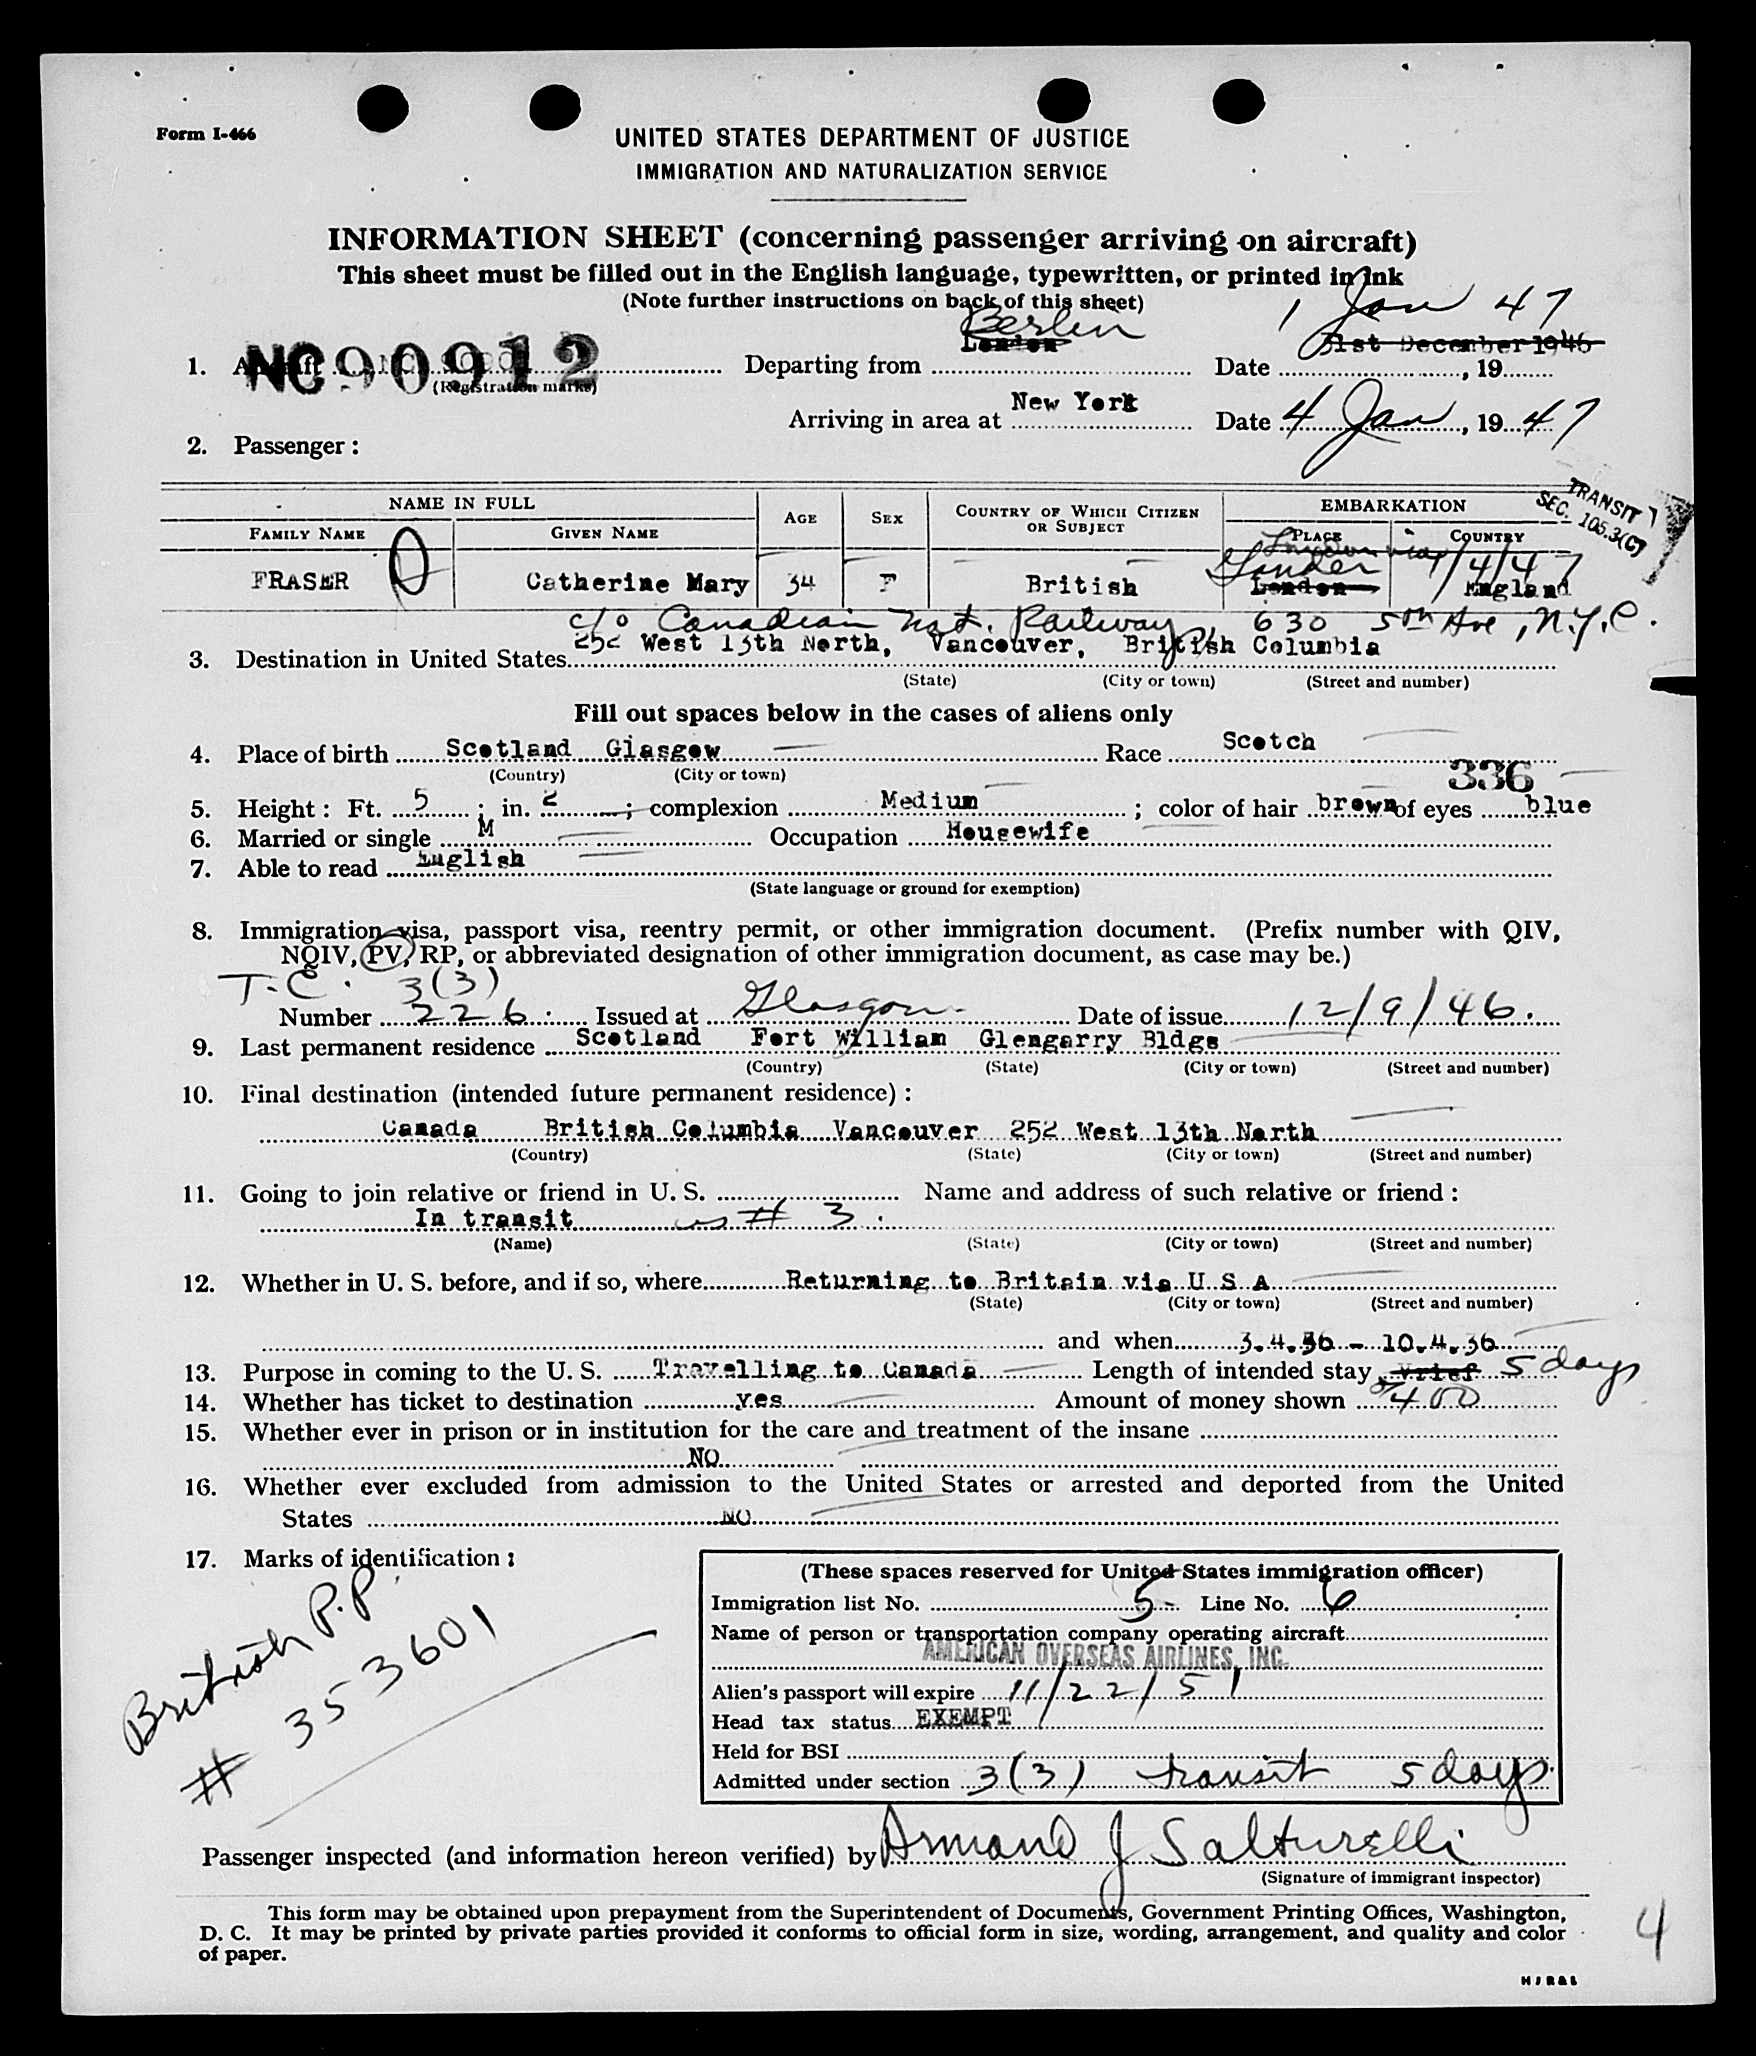 Form I-466
UNITED STATES DEPARTMENT OF JUSTICE
IMMIGRATION AND NATURALIZATION SERVICE
INFORMATION SHEET (concerning passenger arriving on aircraft)
This sheet must be filled out in the English language, typewritten, or printed in ink
(Note further instructions on back of this sheet)
1. Aircraft NC90912 Departing from London Berlin Date 31st December 1946 1 Jan 47, 19
(Registration marks)
Arriving in area at New York Date 4 Jan, 19 47
2. Passenger:
TRANSIT
SEC. 105.3(C)
NAME IN FULL AGE SEX COUNTRY OF WHICH CITIZEN OR SUBJECT EMBARKATION
FAMILY NAME GIVEN NAME PLACE COUNTRY
via 1/4/47
Gander
FRASER Catherine Mary 34 F British London England
c/o Canadian Nat. Railway, 630 5th Ave, N.Y.C.
3. Destination in United States 252 West 13th North, Vancouver, British Columbia
(State) (City or town) (Street and number)
Fill out spaces below in the cases of aliens only
4. Place of birth Scotland Glasgow Race Scotch
(Country) (City or town)
336
5. Height: Ft. 5; in. 2; complexion Medium; color of hair brown of eyes blue
6. Married or single M Occupation Housewife
7. Able to read English
(State language or ground for exemption)
8. Immigration visa, passport visa, reentry permit, or other immigration document. (Prefix number with QIV,
NQIV, PV, RP, or abbreviated designation of other immigration document, as case may be.)
T.C. 3(3)
Number 226. Issued at Glasgow. Date of issue 12/9/46.
9. Last permanent residence Scotland Fort William Glengarry Bldgs
(Country) (State) (City or town) (Street and number)
10. Final destination (intended future permanent residence):
Canada British Columbia Vancouver 252 West 13th North
(Country) (State) (City or town) (Street and number)
11. Going to join relative or friend in U. S. Name and address of such relative or friend:
In transit as # 3.
(Name) (State) (City or town) (Street and number)
12. Whether in U. S. before, and if so, where Returning to Britain via U S A
(State) (City or town) (Street and number)
and when 3.4.36 - 10.4.36
13. Purpose in coming to the U. S. Travelling to Canada Length of intended stay Brief 5 days
14. Whether has ticket to destination yes Amount of money shown $400
15. Whether ever in prison or in institution for the care and treatment of the insane
NO
16. Whether ever excluded from admission to the United States or arrested and deported from the United
States NO
17. Marks of identification:
British P.P.
# 353601
(These spaces reserved for United States immigration officer)
Immigration list No. 5 Line No. 6
Name of person or transportation company operating aircraft
AMERICAN OVERSEAS AIRLINES, INC.
Alien's passport will expire 11/22/51
Head tax status EXEMPT
Held for BSI
Admitted under section 3(3) transit 5 days.
Passenger inspected (and information hereon verified) by Armand J Salturelli
(Signature of immigrant inspector)
This form may be obtained upon prepayment from the Superintendent of Documents, Government Printing Offices, Washington,
D. C. It may be printed by private parties provided it conforms to official form in size, wording, arrangement, and quality and color
of paper.
4